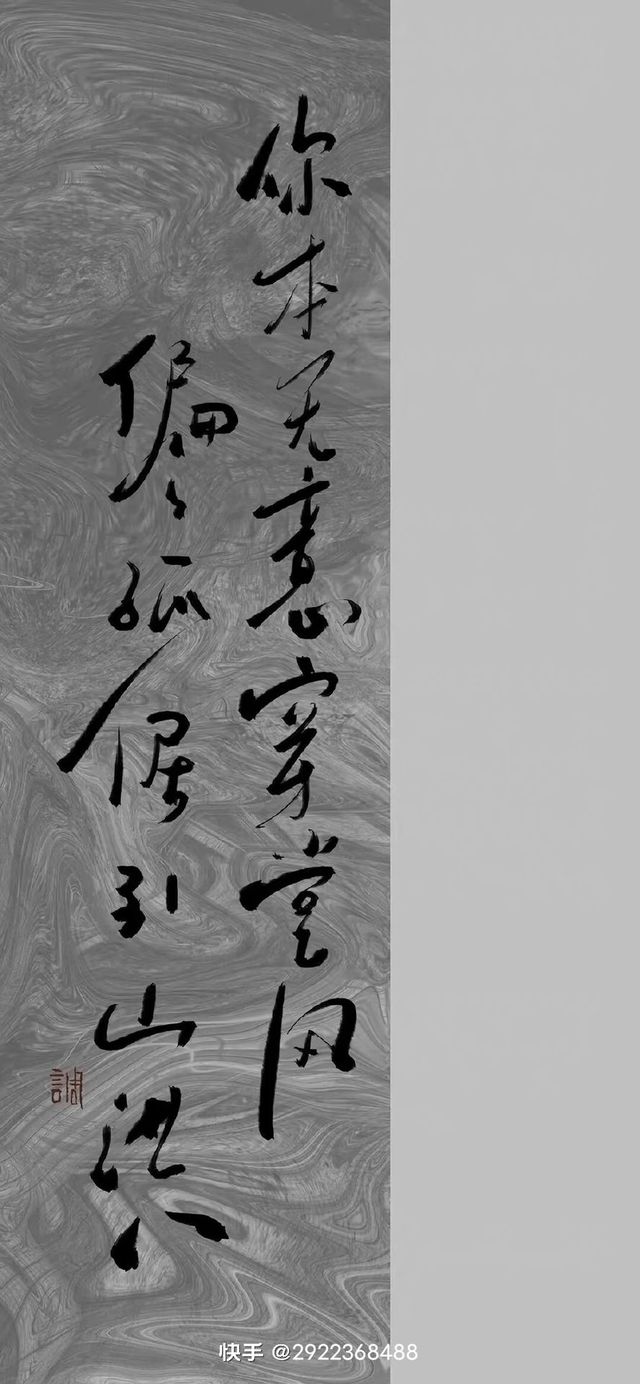 你本无意穿堂风
偏偏孤倨引山洪
快手 @2922368488